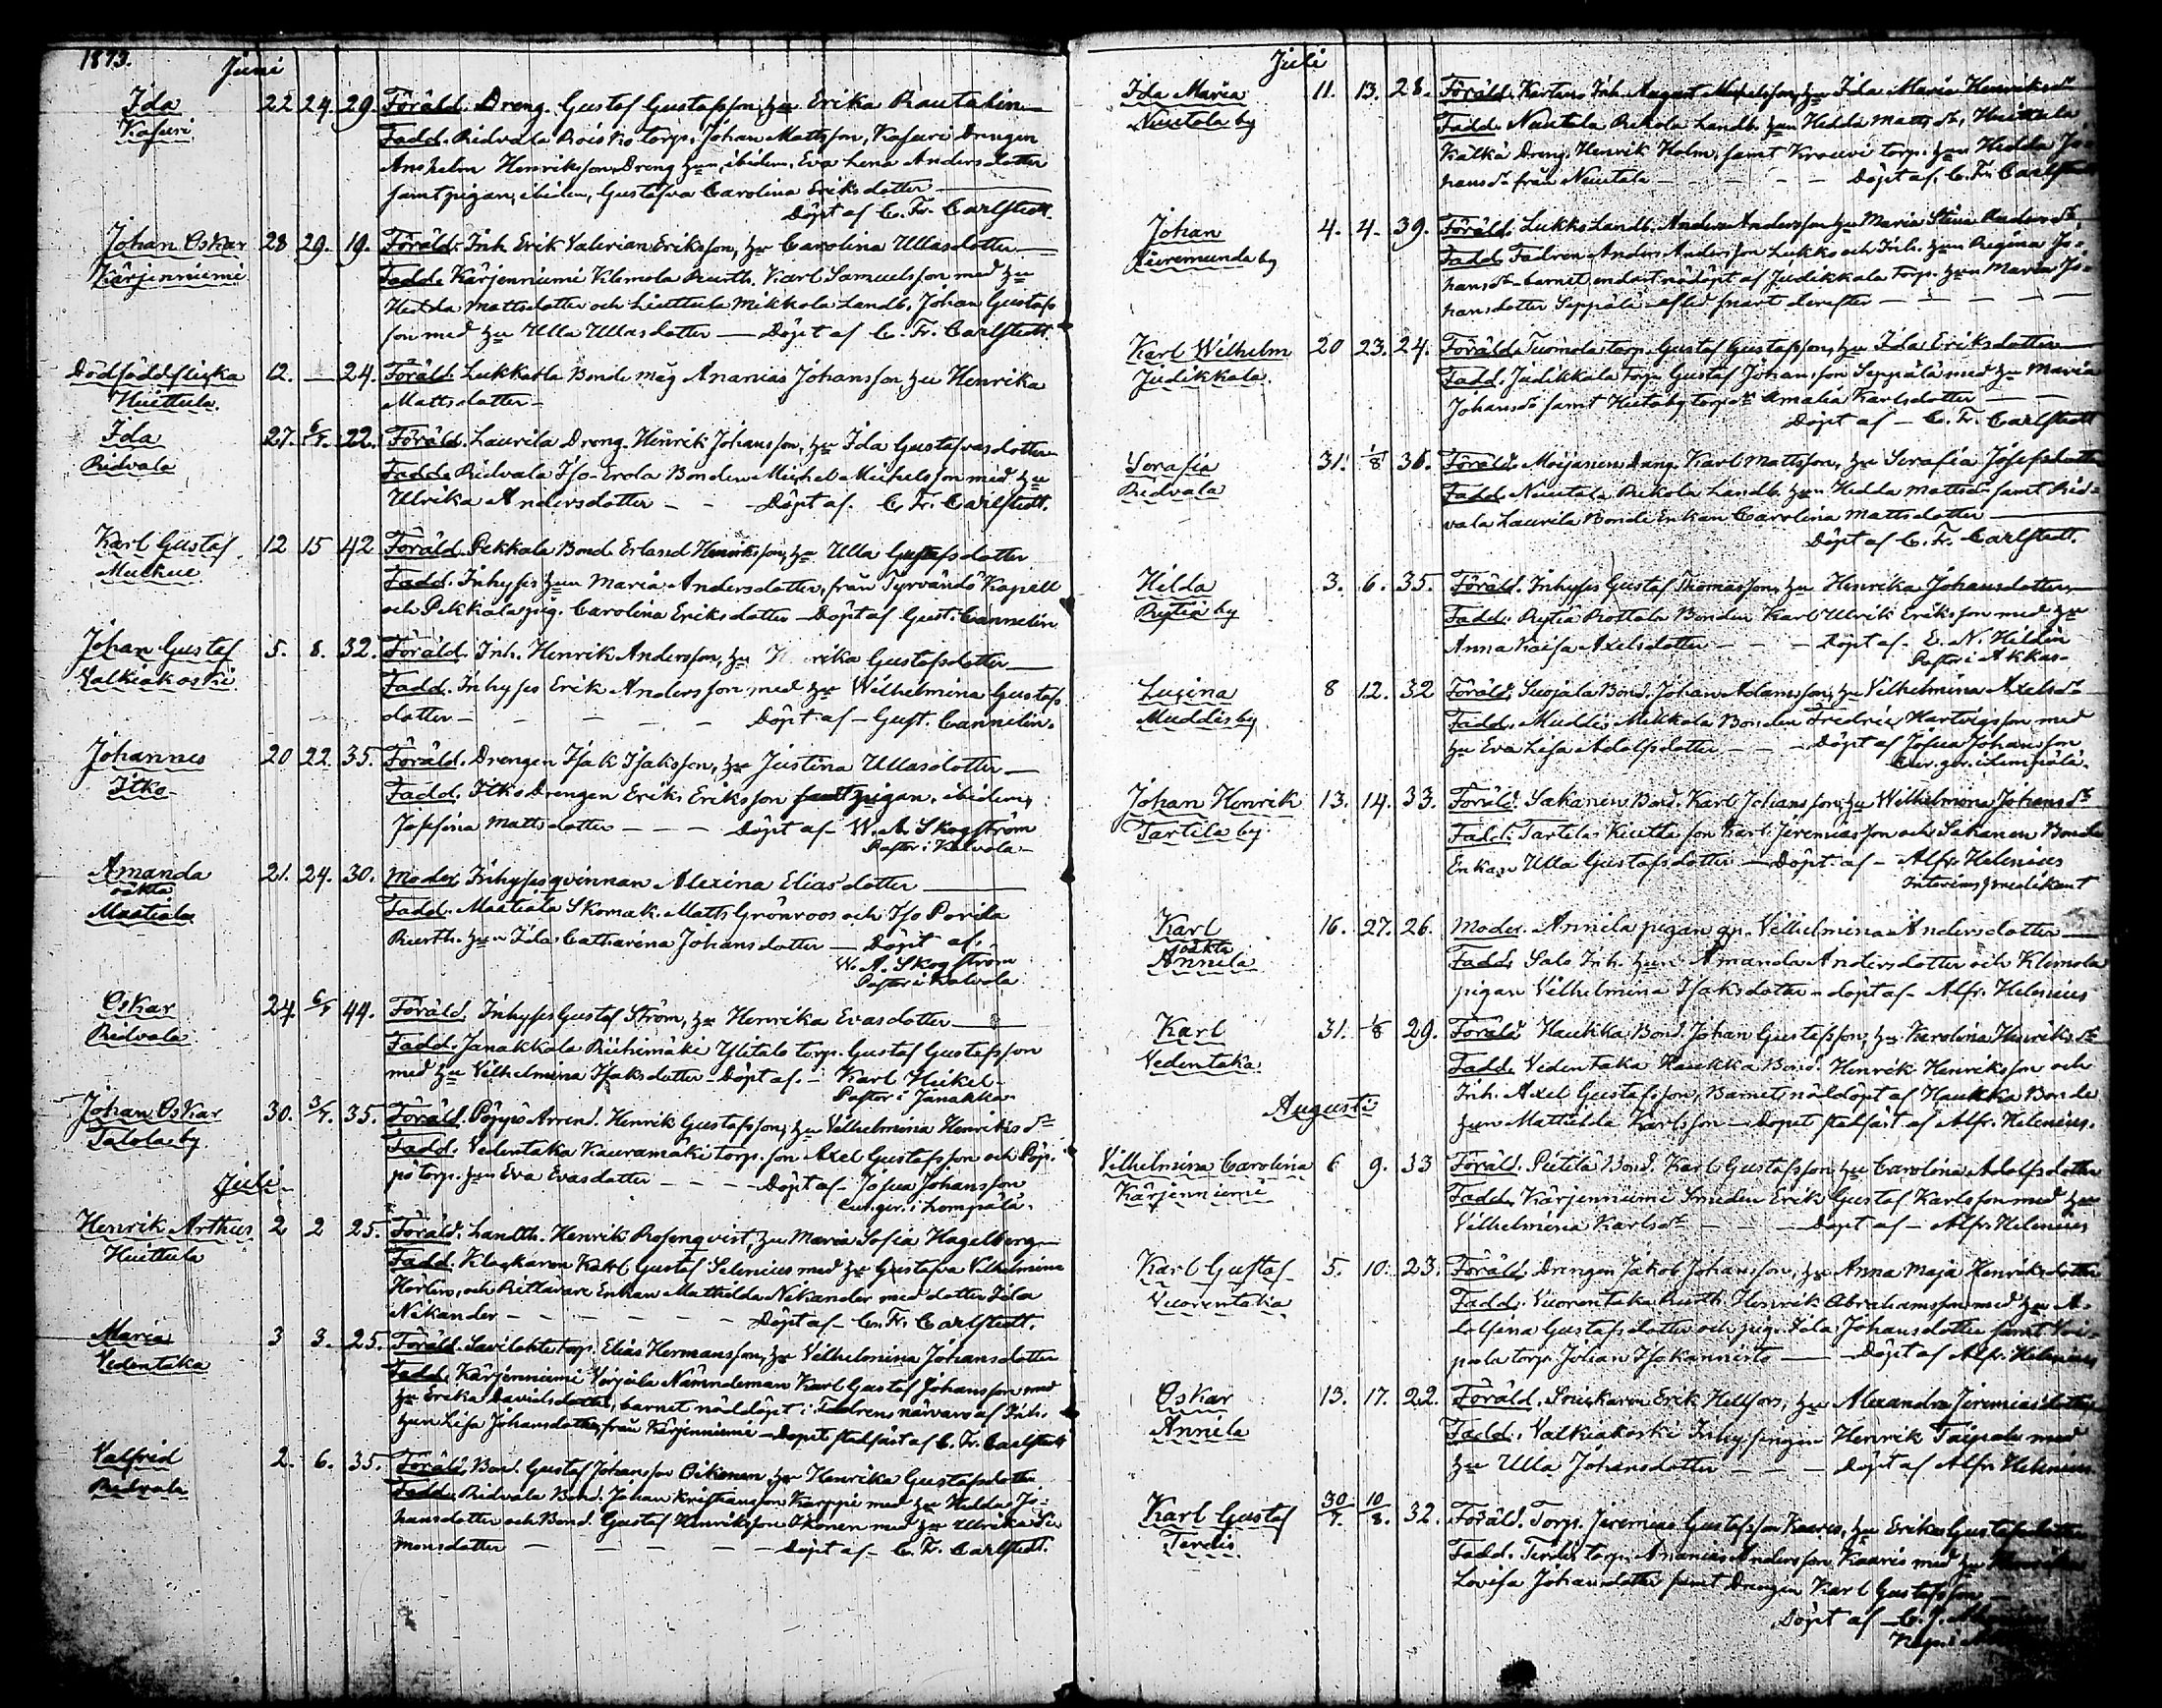 1873.
Juni
Ida 22 24. 29. Föräld. Dreng. Gustaf Gustafsson, hu Erika Rautalin
Kasuri Fadd. Ridvala Rois ko torp. Johan Mattsson, Kasuri Drengen
Anshelm Henriksson, Dreng hun, ibidem, Eva Lena Andersdotter
samt pigan, ibidem, Gustafva Carolina Eriksdotter
Döpt af C. Fr. Carlstedt.
Johan Oskar 28 29. 19. Föräld. Inh. Erik Valerian Eriksson, hu Carolina Ullasdotter
Kärjenniemi Fadd. Kärjenniemi Klemola Rusth. Karl Samuelsson med hu
Hedda Mattsdotter och Liuttula Mikkola Landb. Johan Gustafs
son med hu Ulla Ullasdotter — Döpt af C. Fr. Carlstedt.
Dödfödd flicka 12. — 24. Föräld. Lukkarla Bonde måg Ananias Johansson hu Henrika
Huittula. Mattsdotter
Ida 27. 6/7. 22. Föräld. Laurila Dreng. Henrik Johansson, hu Ida Gustafvasdotter
Ridvala Fadd. Ridvala Iso-Erola Bonden Michel Michelsson med hu
Ulrika Andersdotter - - Döpt af. C. Fr. Carlstedt.
Karl Gustaf 12 15 42 Föräld. Pekkala Bond. Erland Henriksson, hu Ulla Gustafsdotter
Muckue Fadd. Inhyses hun Maria Andersdotter, från Tyrvändö Kapell
och Pekkala pig. Carolina Eriksdotter — Döpt af Gust. Cannelin
Johan Gustaf 5. 8. 32. Föräld. Inh. Henrik Andersson, hu Henrika Gustafsdotter
Valkiakoski Fadd. Inhyses Erik Andersson med hu Wilhelmina Gustafs
dotter - - - - - Döpt af - Gust. Cannelin.
Johannes 20 22. 35. Föräld. Drengen Isak Isaksson, hu Justina Ullasdotter
Itko Fadd. Itko Drengen Erik Eriksson samt pigan, ibidem,
Josefina Mattsdotter - - - Döpt af - W. A. Skogström
Pastor i Kalvola
Amanda 21. 24. 30. Moder Inhysesqvinnan Alexina Eliasdotter
oäkta
Maatiala Fadd. Maatiala Skomak. Matts Grönroos och Iso Porila
Rusth. hun Ida Catharina Johansdotter — Döpt af.
W. A. Skogström
Pastor i Kalvola
Oskar 24. 6/7 44. Föräld. Inhyses Gustaf Ström, hu Henrika Evasdotter
Ridvala Fadd. Janakkala Riihimäki Ylitalo torp. Gustaf Gustafsson
med hu Vilhelmina Isaksdotter - Döpt af. - Karl Heikel
Pastor i Janakkala
Johan Oskar 30. 3/7. 35. Föräld. Pöppö Arrend. Henrik Gustafsson, hu Vilhelmina Henriks dr
Talola by. Fadd. Vedentaka Kauramäki torp. son Axel Gustafsson och Pöp-
pö torp. hun Eva Evasdotter - - - Döpt af - Josua Johansson
Cur. ger. i Lempälä.
Juli
Henrik Arthur 2 2 25. Föräld. Landth. Henrik Rosenqvist, hu Maria Sofia Hagelberg
Huittula Fadd. Klockaren Karl Gustaf Selenius med hu Gustafva Vilhelmina
Hörlin, och Rittarare Enkan Mathilda Nikander med dotter Ida
Nikander - - - - - - Döpt af C. Fr. Carlstedt.
Maria 3 3. 25. Föräld. Savilahti torp. Elias Hermansson, hu Vilhelmina Johansdotter
Vedentaka Fadd. Kärjenniemi Yörjola Nämndeman Karl Gustaf Johansson med
hu Erika Davidsdotter, barnet nöddöpt i Faddrens närvaro af Inh.
hun Lisa Johansdotter, från Kärjenniemi — Dopet stadfäst af C. Fr. Carlstedt
Valfrid 2. 6. 35. Föräld. Bond. Gustaf Johansson Oikonen hu Henrika Gustafsdotter
Ridvala Fadd. Ridvala Bond. Johan Kristiansson Karppi med hu Hedda Jo-
hansdotter och Bond. Gustaf Henriksson Ikonen med hu Ulrika Si-
monsdotter - - - - - Döpt af - C. Fr. Carlstedt.
Juli
Ida Maria 11. 13. 28. Föräld. Inh. August Michelsson, hu Ida Maria Henriksdr
Nuutala by Fadd. Nuutala Rekola Landb. hun Hedda Matts dr, Huittula
Kälkä Dreng. Henrik Holm, samt Krouvi torp. hun Hedda Jo-
hansdr från Nuutala - - - - Döpt af. C. Fr. Carlstedt
Johan 4. 4. 39. Föräld. Lukko Landb. Anders Andersson hu Maria Stina Andersdr,
Sääremunda by Fadd. Fadren Anders Andersson Lukko och Inh. hun Regina Jo-
hansdr - barnet endast nödöpt af Judikkala torp. hun Maria Jo-
hansdotter Seppälä - afled snart derefter - - - -
Karl Wilhelm 20 23. 24. Föräld. Tuomola torp. Gustaf Gustafsson, hu Ida Eriksdotter
Judikkala. Fadd. Judikkala torp. Gustaf Johansson Seppälä med hu Maria
Johansdr samt Huta by torp. dr Amalia Karlsdotter - -
Döpt af - C. Fr. Carlstedt
Serafia 31. 1/8 36. Föräld. Moijanen Dreng. Karl Mattsson, hu Serafia Josefsdotter
Ridvala Fadd. Nuutala Rekola Landb. hun Hedda Mattsdr samt Rid-
vala Laurila Bonde Enkan Carolina Mattsdotter
Döpt af C. Fr. Carlstedt.
Hilda 3. 6. 35. Föräld. Inhyses Gustaf Thomasson, hu Henrika Johansdotter
Rytiä by Fadd. Rytiä Rottola Bonden Karl Ulrik Eriksson med hu
Anna Kaisa Axelsdotter - - - Döpt af - E. N. Hildén
Pastor i Akkas
Lusina 8 12. 32 Föräld. Suojala Bond. Johan Adamsson, hu Vilhelmina Axelsdr
Muddis by Fadd. Muddis Mikkola Bonden Fredric Hartvigsson med
hu Eva Lisa Adolfsdotter - - - Döpt af Josua Johansson
Cur. ger. i Lempälä.
Johan Henrik 13. 14. 33. Föräld. Sakanen Bond. Karl Johansson, hu Wilhelmina Johansdr
Tartila by. Fadd. Tartila Kuuttu son Karl Jeremiasson och Sakanen Bonde
Enkan Ulla Gustafsdotter — Döpt af - Alfr. Helenius
Interims predikant
Karl 16. 27. 26. Moder. Annila pigan qv. Vilhelmina Andersdotter
oäkta
Annila Fadd. Salo Inh. hun Amanda Andersdotter och Klemola
pigan Vilhelmina Isaksdotter - döpt af - Alfr. Helenius
Karl 31. 1/8 29. Föräld. Haukka Bond. Johan Gustafsson, hu Karolina Henriks dr
Vedentaka Fadd. Vedentaka Haukka Bond. Henrik Henriksson och
Inh. Axel Gustafsson, Barnet nöddöpt af Haukka Bonde
hun Mathilda Karlsson — Dopet stadfäst af Alfr. Helenius.
Augusti
Vilhelmina Carolina 6 9. 33 Föräld. Pietilä Bond. Karl Gustafsson, hu Carolina Adolfsdotter
Kärjenniemi Fadd. Kärjenniemi Smeden Erik Gustaf Karlsson med hu
Vilhelmina Karlsdr - - - Döpt af - Alfr. Helenius
Karl Gustaf 5. 10. 23. Föräld. Drengen Jakob Johansson, hu Anna Maja Henriksdotter
Vuorentaka Fadd. Vuorentaka Rusth. Henrik Abrahamsson med hu A-
dolfina Gustafsdotter och pig. Ida Johansdotter samt Voi-
pala torp. Johan Isokannisto — Döpt af Alfr. Helenius
Oskar 13. 17. 22. Föräld. Erik Hellfors, hu Alexandra Jeremiasdotter
Annila Fadd. Valkiakoski Inhysingen Henrik Taipale med
hu Ulla Johansdotter - - - Döpt af Alfr. Helenius
Karl Gustaf 30/7. 10/8. 32. Föräld. Torp. Jeremias Gustafsson Kaaris, hu Erika Gustafsdotter
Terdis. Fadd. Terdis torp. Ananias Andersson Kaaris med hu Henrika
Lovisa Johansdotter samt Drengen Karl Gustafsson
Döpt af C. J.